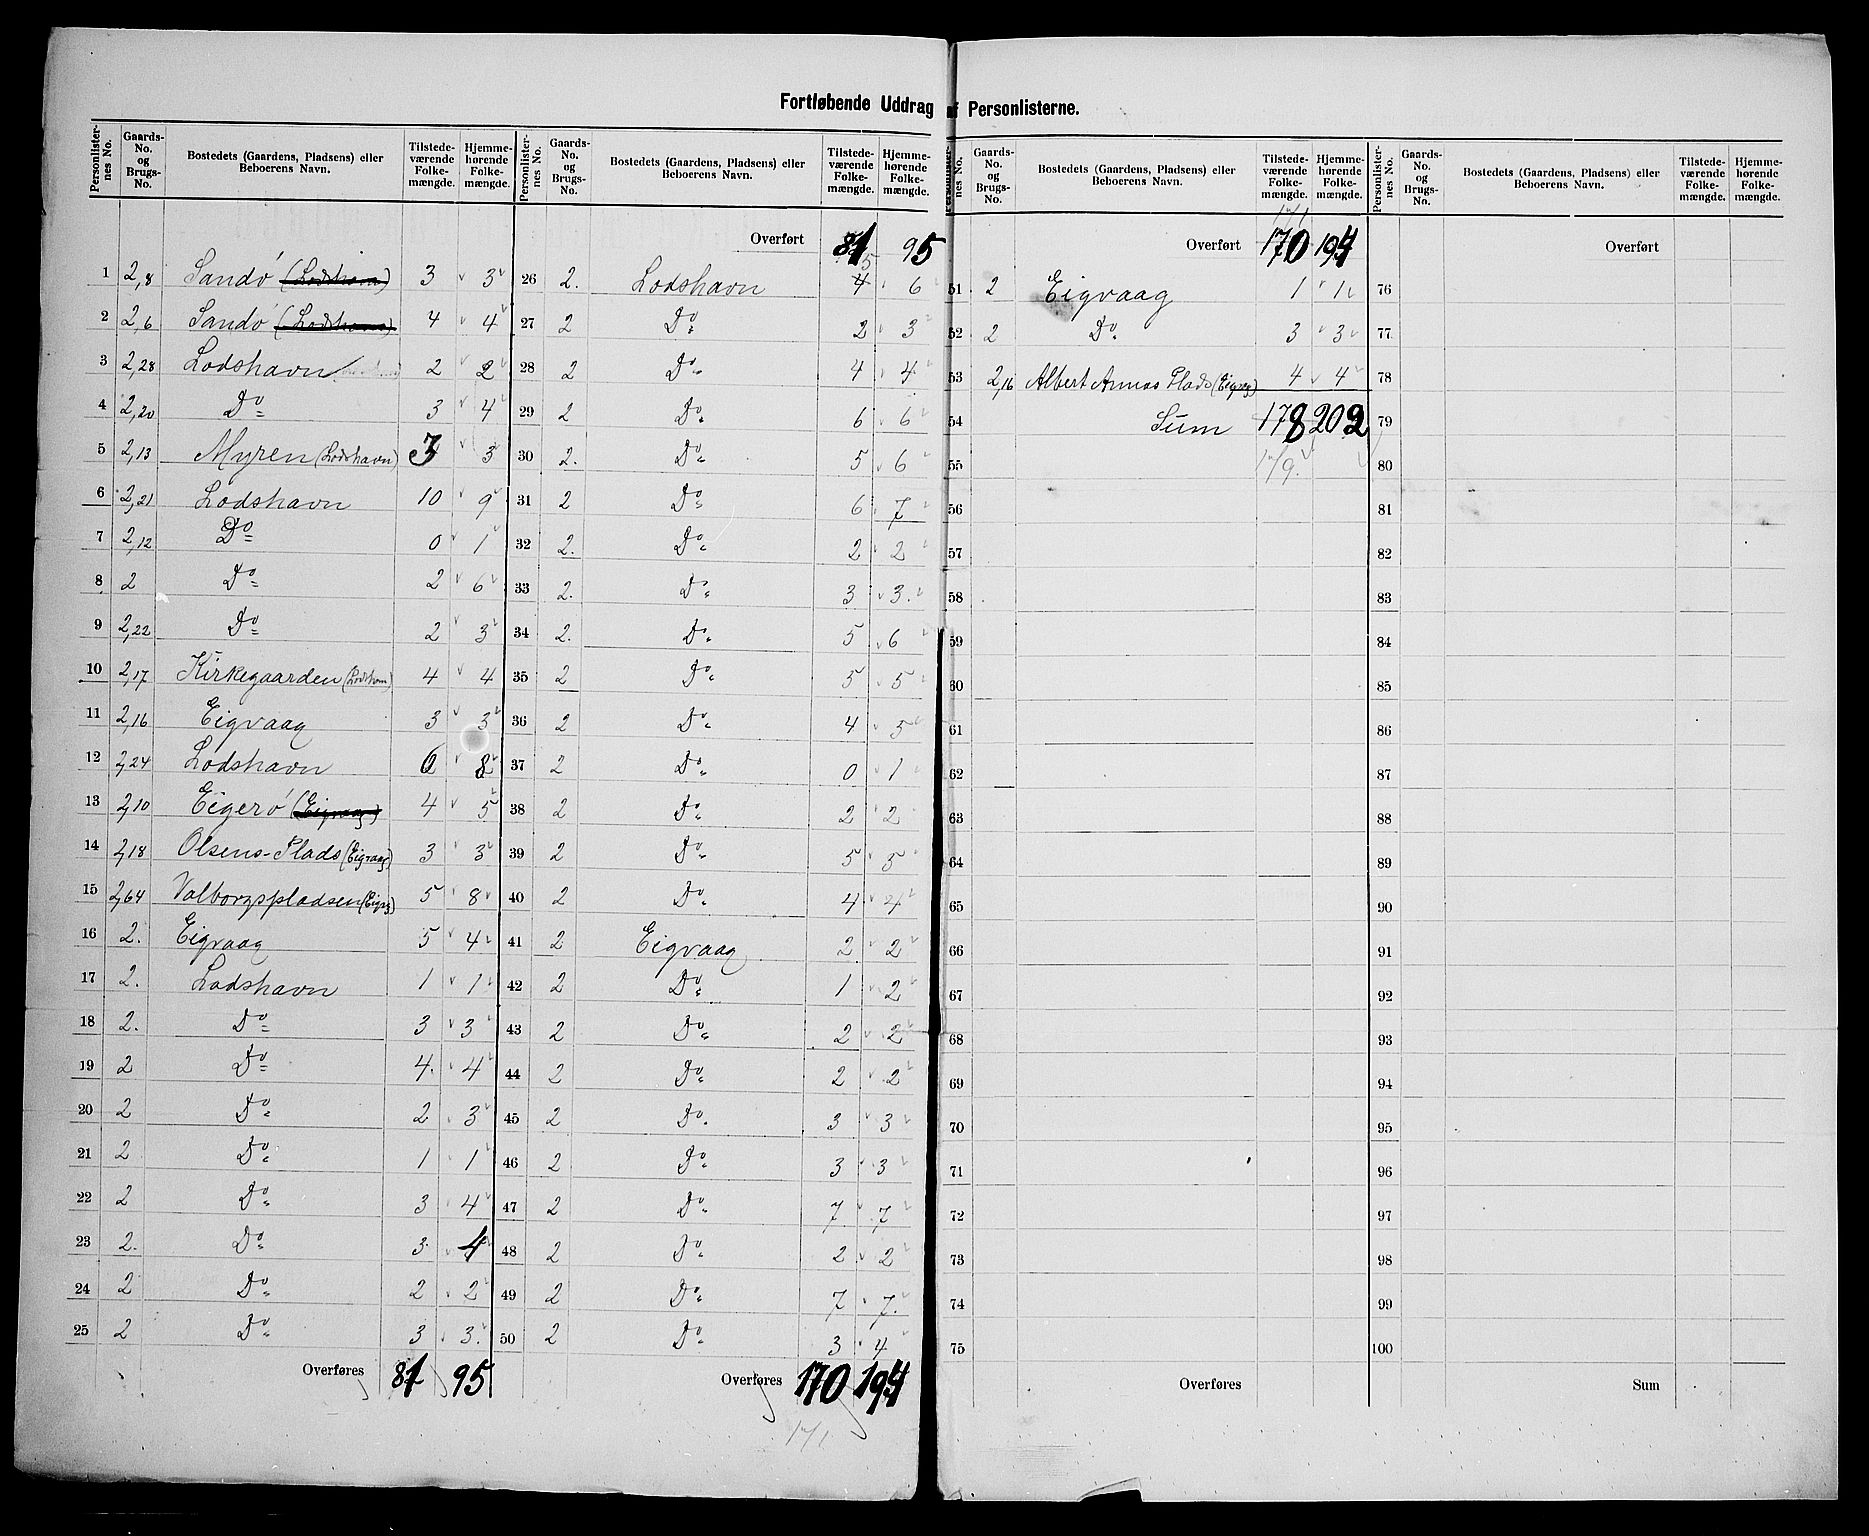 Fortløbende Uddrag af Personlisterne.
Personlisternes No. Gaards-No. og Brugs-No. Bostedets (Gaardens, Pladsens) eller Beboerens Navn. Tilstedeværende Folkemængde. Hjemmehørende Folkemængde.
1 2,8 Sandø (Lodshavn) 3 3
2 2,6 Sandø (Lodshavn) 4 4
3 2,28 Lodshavn 2 2
4 2,20 Do 3 4
5 2,13 Myren (Lodshavn) 3 3
6 2,21 Lodshavn 10 9
7 2,12 Do 0 1
8 2 Do 2 6
9 2,22 Do 2 3
10 2,17 Kirkegaarden (Lodshavn) 4 4
11 2,16 Eigvaag 3 3
12 2,24 Lodshavn 6 8
13 2,10 Eigerø (Eigvaag) 4 5
14 2,18 Olsens-Plads (Eigvaag) 3 3
15 2,64 Valborgspladsen (Eigvg) 5 8
16 2. Eigvaag 5 4
17 2. Lodshavn 1 1
18 2. Do 3 3
19 2 Do 4. 4
20 2 Do 2 3
21 2 Do 1 1
22 2 Do 3 4
23 2. Do 3 4
24 2 Do 2 2
25 2 Do 3 3.
Overføres 81 95
Personlisternes No. Gaards-No. og Brugs-No. Bostedets (Gaardens, Pladsens) eller Beboerens Navn. Tilstedeværende Folkemængde. Hjemmehørende Folkemængde.
Overført 81 95
5
26 2. Lodshavn 4 6
27 2 Do 2 3
28 2 Do 4 4
29 2 Do 6 6
30 2. Do 5 6
31 2 Do 6 7
32 2. Do 2 2
33 2. Do 3 3.
34 2. Do 5 6
35 2 Do 5 5
36 2 Do 4 5
37 2 Do 0 1
38 2 Do 2 2
39 2 Do 5 5
40 2 Do 4 4
41 2 Eigvaag 2 2
42 2 Do 1 2
43 2 Do 2 2
44 2 Do 2 2
45 2 Do 3 3
46 2 Do 3 3
47 2 Do 7 7
48 2 Do 2 2
49 2 Do 7 7.
50 2 Do 3 4
Overføres 170 194
171
Personlisternes No. Gaards-No. og Brugs-No. Bostedets (Gaardens, Pladsens) eller Beboerens Navn. Tilstedeværende Folkemængde. Hjemmehørende Folkemængde.
171
Overført 170 194
51 2 Eigvaag 1 1
52 2 Do 3 3
53 2,16 Albert Annas Plads (Eigvg) 4 4
54 Sum 178 202
55 179.
56
57
58
59
60
61
62
63
64
65
66
67
68
69
70
71
72
73
74
75
Overføres
Personlisternes No. Gaards-No. og Brugs-No. Bostedets (Gaardens, Pladsens) eller Beboerens Navn. Tilstedeværende Folkemængde. Hjemmehørende Folkemængde.
Overført
76
77
78
79
80
81
82
83
84
85
86
87
88
89
90
91
92
93
94
95
96
97
98
99
100
Sum